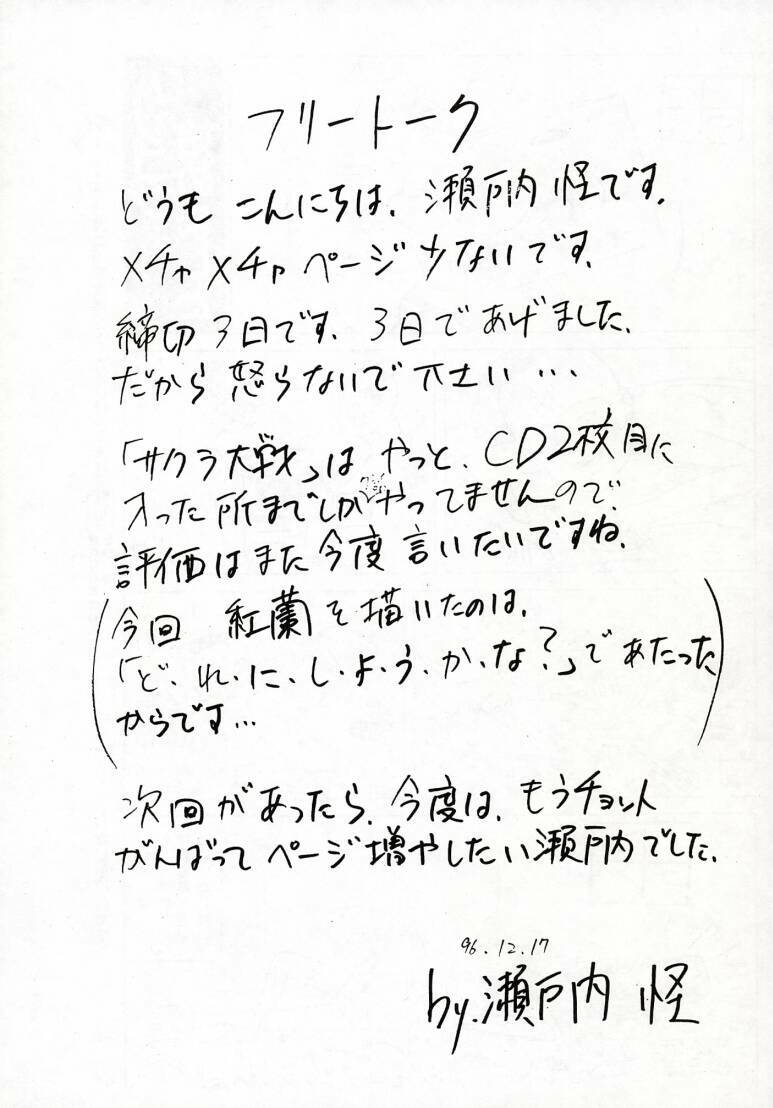 フリートーク
どうも こんにちは、瀬戸内 怪です。
メチャメチャ ページ少ないです。
締切3日です。3日であげました。
だから 怒らないで下さい…
「サクラ大戦」は やっと、CD2枚目に
入った所までしかやってませんので、
評価はまた今度 言いたいですね。
(今回 紅蘭を描いたのは、
「ど、れ、に、し、よ、う、か、な?」であたった
からです…)
次回があったら、今度は、もうチョット
がんばって ページ増やしたい瀬戸内でした。
96.12.17
by.瀬戸内 怪